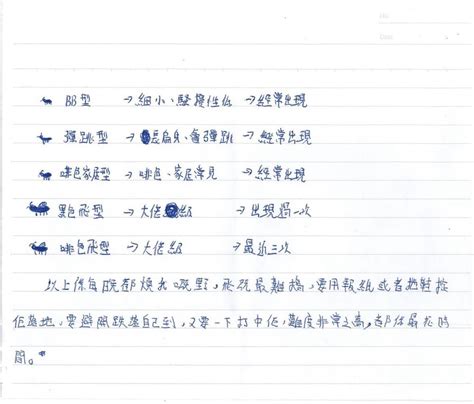 BB型 → 細小、騷擾性低 → 經常出現
彈跳型 → 長扁身、會彈跳 → 經常出現
啡色家居型 → 啡色、家居常見 → 經常出現
黑色飛型 → 大佬級 → 出現過一次
啡色飛型 → 大佬級 → 最近三次
以上係每晚都煩我嘅野，飛既最難搞，要用報紙或者拖鞋
低落地，要避開跌落自己到，又要一下打中佢，難度非常之高，都係最花時
間。